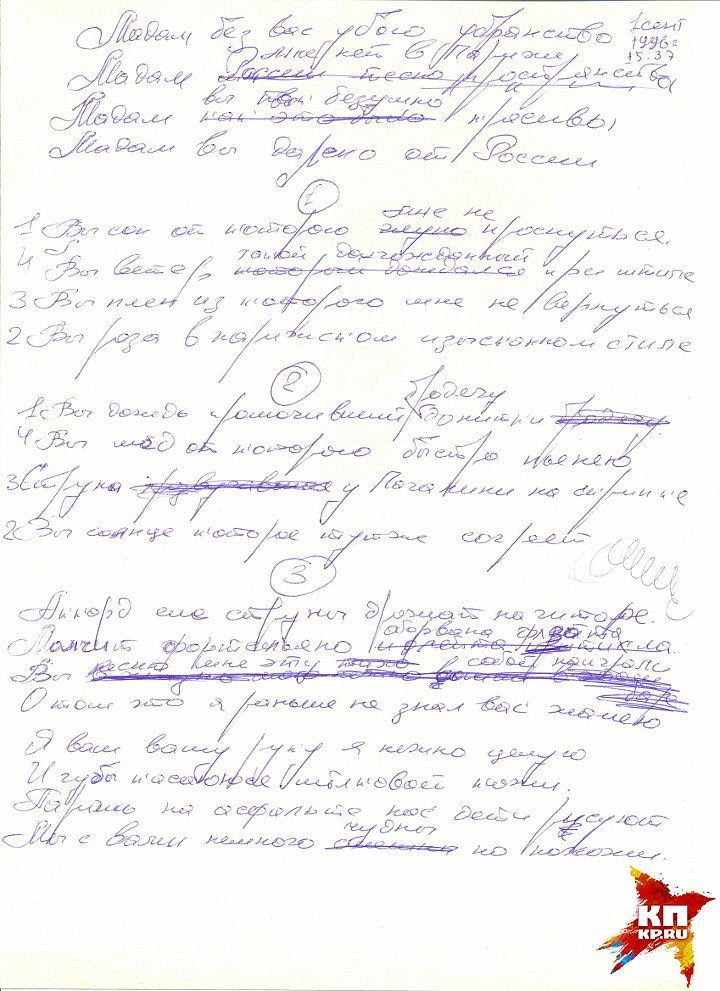 Мадам без вас убого убранство
1 сент
1996 г
15:37
мне нет в Париже
Мадам России тесно пространства
вы так безумно
Мадам как это было красивы
Мадам вы далеко от России
1
мне не
1 Вы сон от которого проснуться.
такой долгожданный
4 Вы ветер, который дождался при штиле
3 Вы плен из которого мне не вернуться
2 Вы роза в парижском изысканном стиле
2
бродягу
1 Вы дождь промочивший до нитки бродягу
4 Вы мёд от которого быстро пьянею
3 Струна у Паганини на скрипке
2 Вы солнце которое тут же согреет
3
Аккорд сла струны дрожат на гитаре.
оборвана флейта
Молчит фортепьяно и флейта
песню мне эту тихо собой наиграли
Вы
О том что я раньше не знал вас жалею
Я вам вашу руку я нежно целую
И губы касаются шёлковой кожи.
Париж на асфальте нас дети рисуют
чудны
Мы с вами немного но похожи.
КП
KP.RU